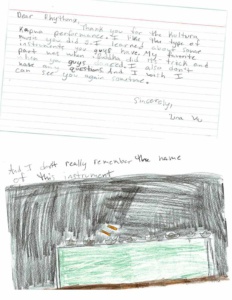 Dear Rhythmz,
Thank you for the Kultura
Kapua performance. I like the type of
music you did :) I learned along some
instruments you guys have. My favorite
part was when did the trick and
when you guys I also don't
have any questions but I wish I
can see you again sometime.
Sincerely,
And I don't really remember the name
of this instrument